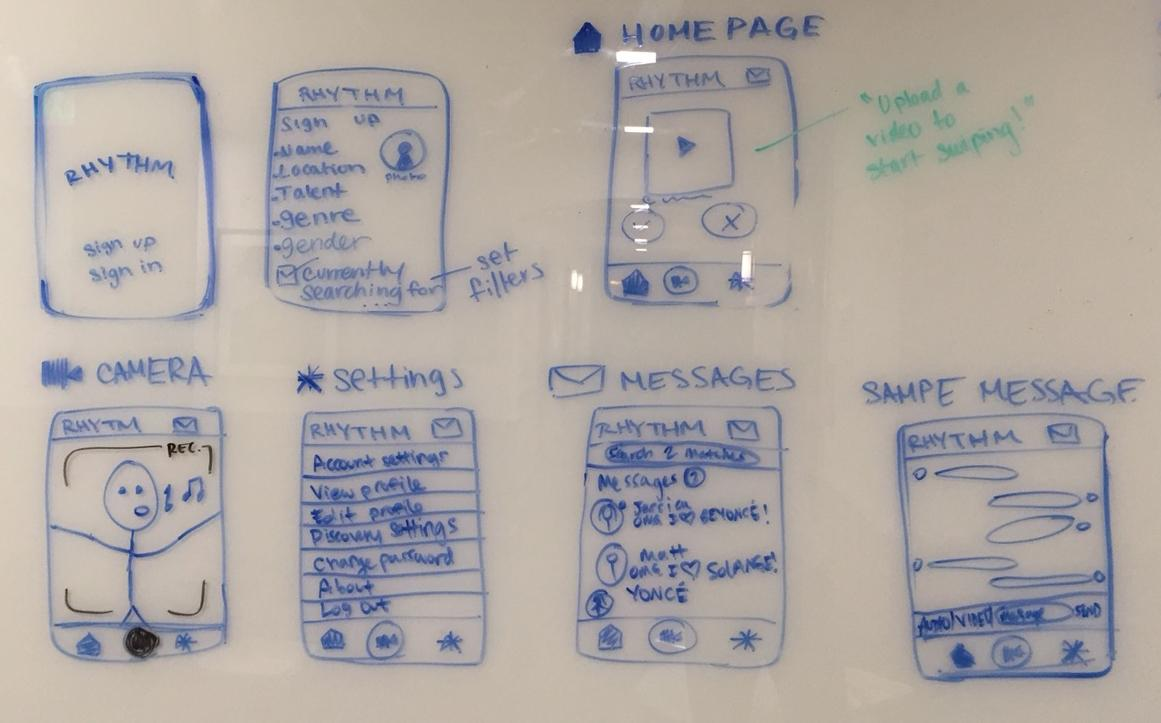 RHYTHM
sign up
sign in
RHYTHM
Sign up
-Name
photo
-Location
-Talent
-genre
-gender
Currently
searching for
...
set
filters
HOME PAGE
RHYTHM
"Upload a
video to
start swiping!"
CAMERA
RHYTM
REC.
settings
RHYTHM
Account settings
View profile
Edit profile
Discovery settings
Change password
About
Log out
MESSAGES
RHYTHM
Search 2 matches
Messages 2
Jessica
OMG I ♡ BEYONCÉ!
Matt
OMG I ♡ SOLANGE!
YONCÉ
SAMPE MESSAGE
RHYTHM
AUDIO/VIDEO/message SEND